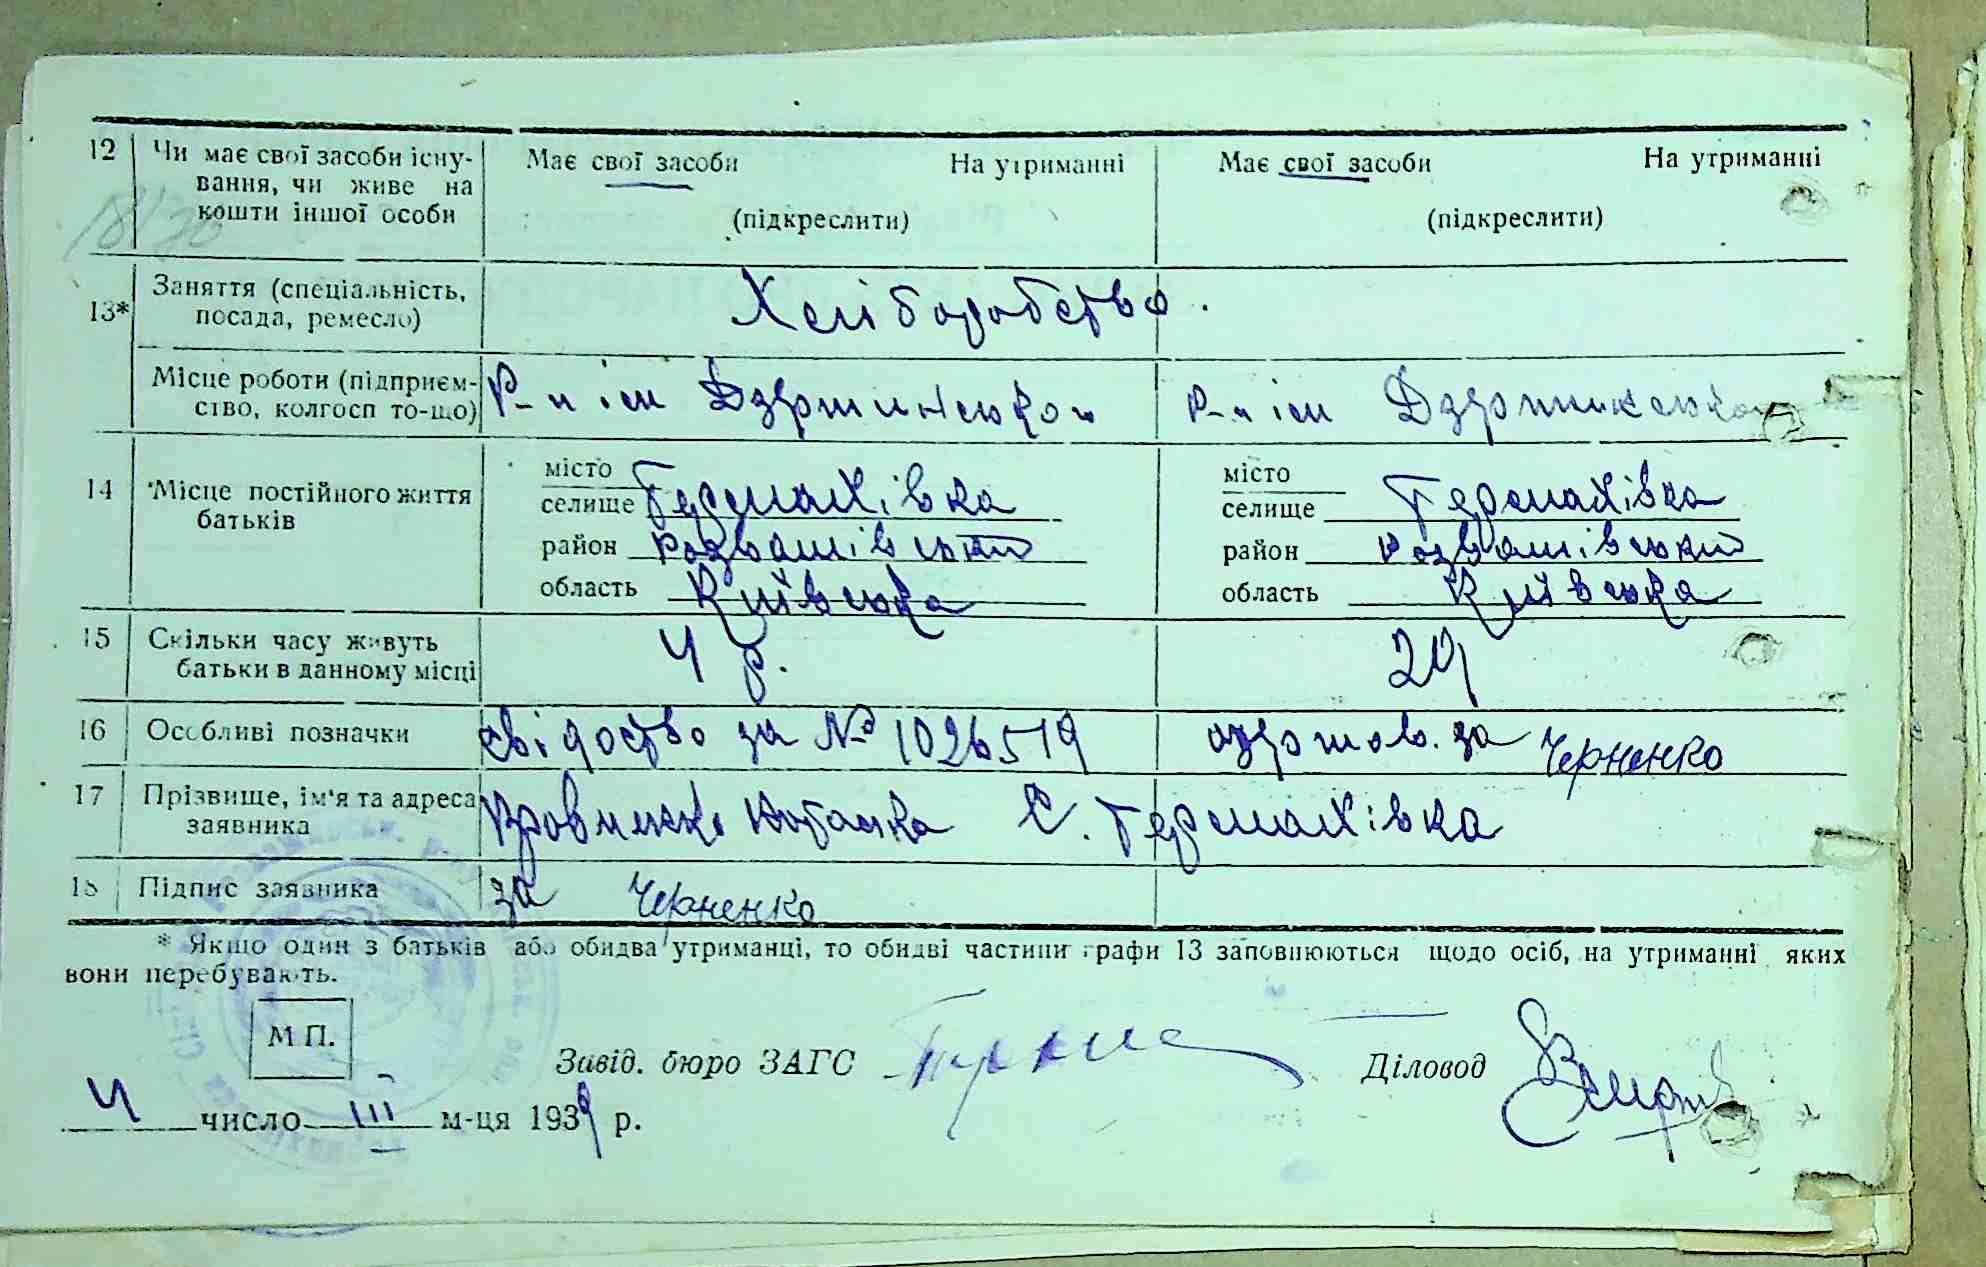 12 Чи має свої засоби існу- Має свої засоби На утриманні Має свої засоби На утриманні
вання, чи живе на
кошти іншої особи (підкреслити) (підкреслити)
18/70
13* Заняття (спеціальність,
посада, ремесло) Хліборобство.
Місце роботи (підприєм- К-п ім Дзержинського К-п ім Дзержинського
ство, колгосп то-що)
14 Місце постійного життя місто місто
батьків селище Термахівка селище Термахівка
район Розважівський район Розважівський
область Київська область Київська
15 Скільки часу живуть 4 р. 20
батьки в данному місці
16 Особливі позначки свідоство за № 1026519 одержав. за Черненко
17 Прізвище, ім'я та адреса с. Термахівка
заявника
18 Підпис заявника за Черненко
* Якшо один з батьків або обидва утриманці, то обидві частини графи 13 заповнюються щодо осіб, на утриманні яких
вони перебувають.
М П.
Завід. бюро ЗАГС Діловод
4 число III м-ця 1939 р.